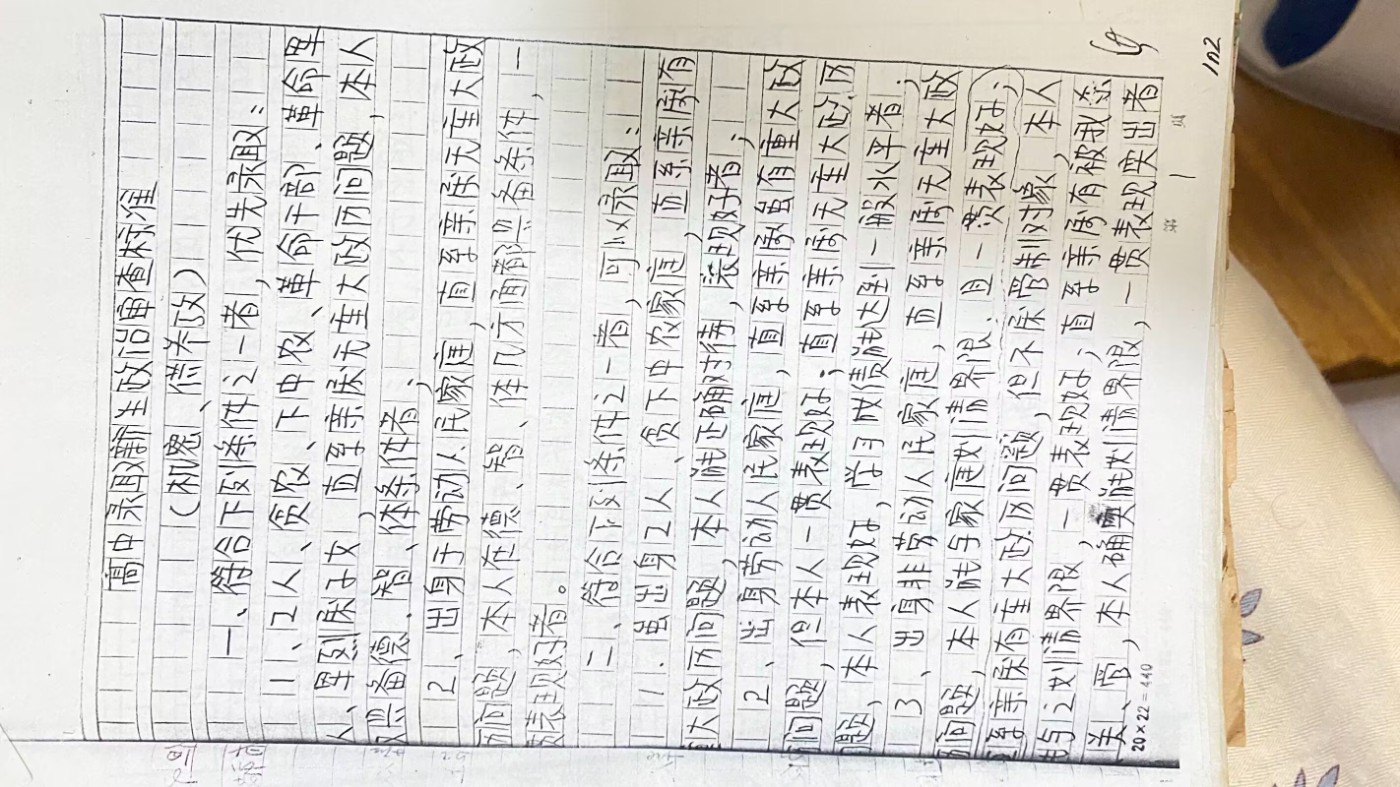 高中录取新生政治审查标准
（初患、供养改）
一、符合下列条件之一者，优先录取：
1、工人、贫农、下中农、革命干部、革命军
人、军烈属子女，直系亲属无重大政历问题，本人
德、智、体条件者；
2、出身于劳动人民家庭，直系亲属无重大政
历问题，本人在德、智、体几方面都具备条件，一
贯表现好者。
二、符合下列条件之一者，可以录取：
1．出身工人、贫下中农家庭，直系亲属有
大政历问题，本人能正确对待，表现好者；
2、出身劳动人民家庭，直系亲属有重大政
历问题，但本人一贯表现好；直系亲属无重大政历
问题，本人表现好，学习成绩能达到一般水平者；
3、出身非劳动人民家庭，直系亲属无重大政
历问题，本人能与家庭划清界限，且一贯表现好；
直系亲属有重大政历问题，但不属管制对象，本人
能与之划清界限，一贯表现好；直系亲属有被我杀
、关、管，本人确实能划清界限，一贯表现突出者
20×22＝440
第 1 页
102